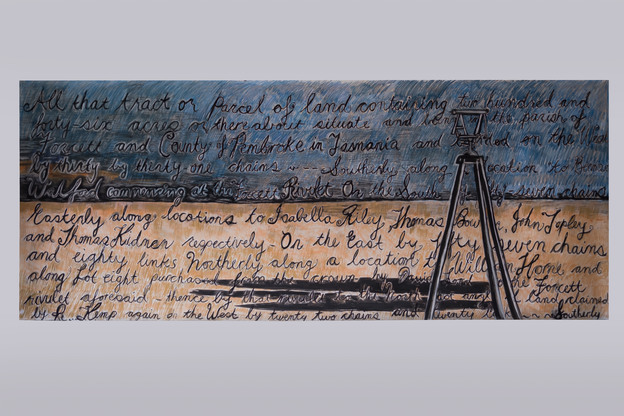 All that tract or Parcel of land containing two hundred and
forty-six acres or thereabout situate and being the parish of
Forcett and County of Pembroke in Tasmania and on the West
by thirty by thirty-one chains Southerly along location to George
commencing at the Forcett Rivulet On the South by seven chains
Easterly along locations to Isabella Riley, Thomas John Topley
and Thomas Kidner respectively - On the East by fifty seven chains
and eighty links Northerly along a location to William Horne, and
along Lot eight purchased from the crown by the Forcett
rivulet aforesaid - thence by that rivulet land claimed
by Kemp again on the West by twenty two chains and twenty Southerly